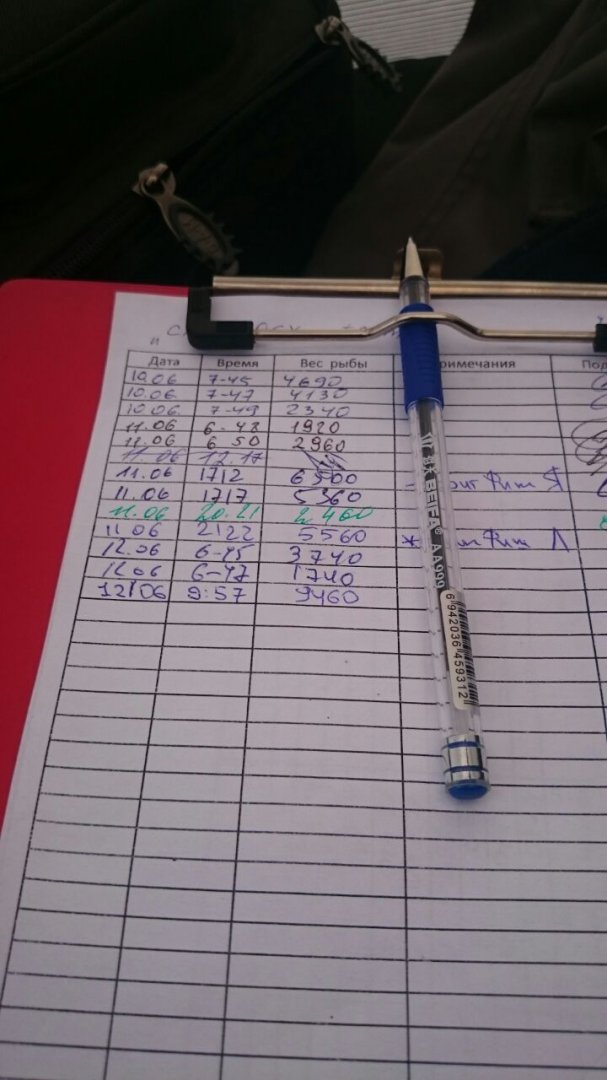 и
Дата Время Вес рыбы римечания Под
10.06 7-45 4690
10.06 7-47 4130
10.06 7-49 2340
11.06 6-48 1920
11.06 6 50 2960
11.06 12.17
11.06 1712 6500
11.06 1717 5360
11.06 20.21 2460
11 06 2122 5560
12.06 6-45 3740
12.06 6-47 1740
12/06 9:57 9460
BEIFA AA999
6 942036 459312